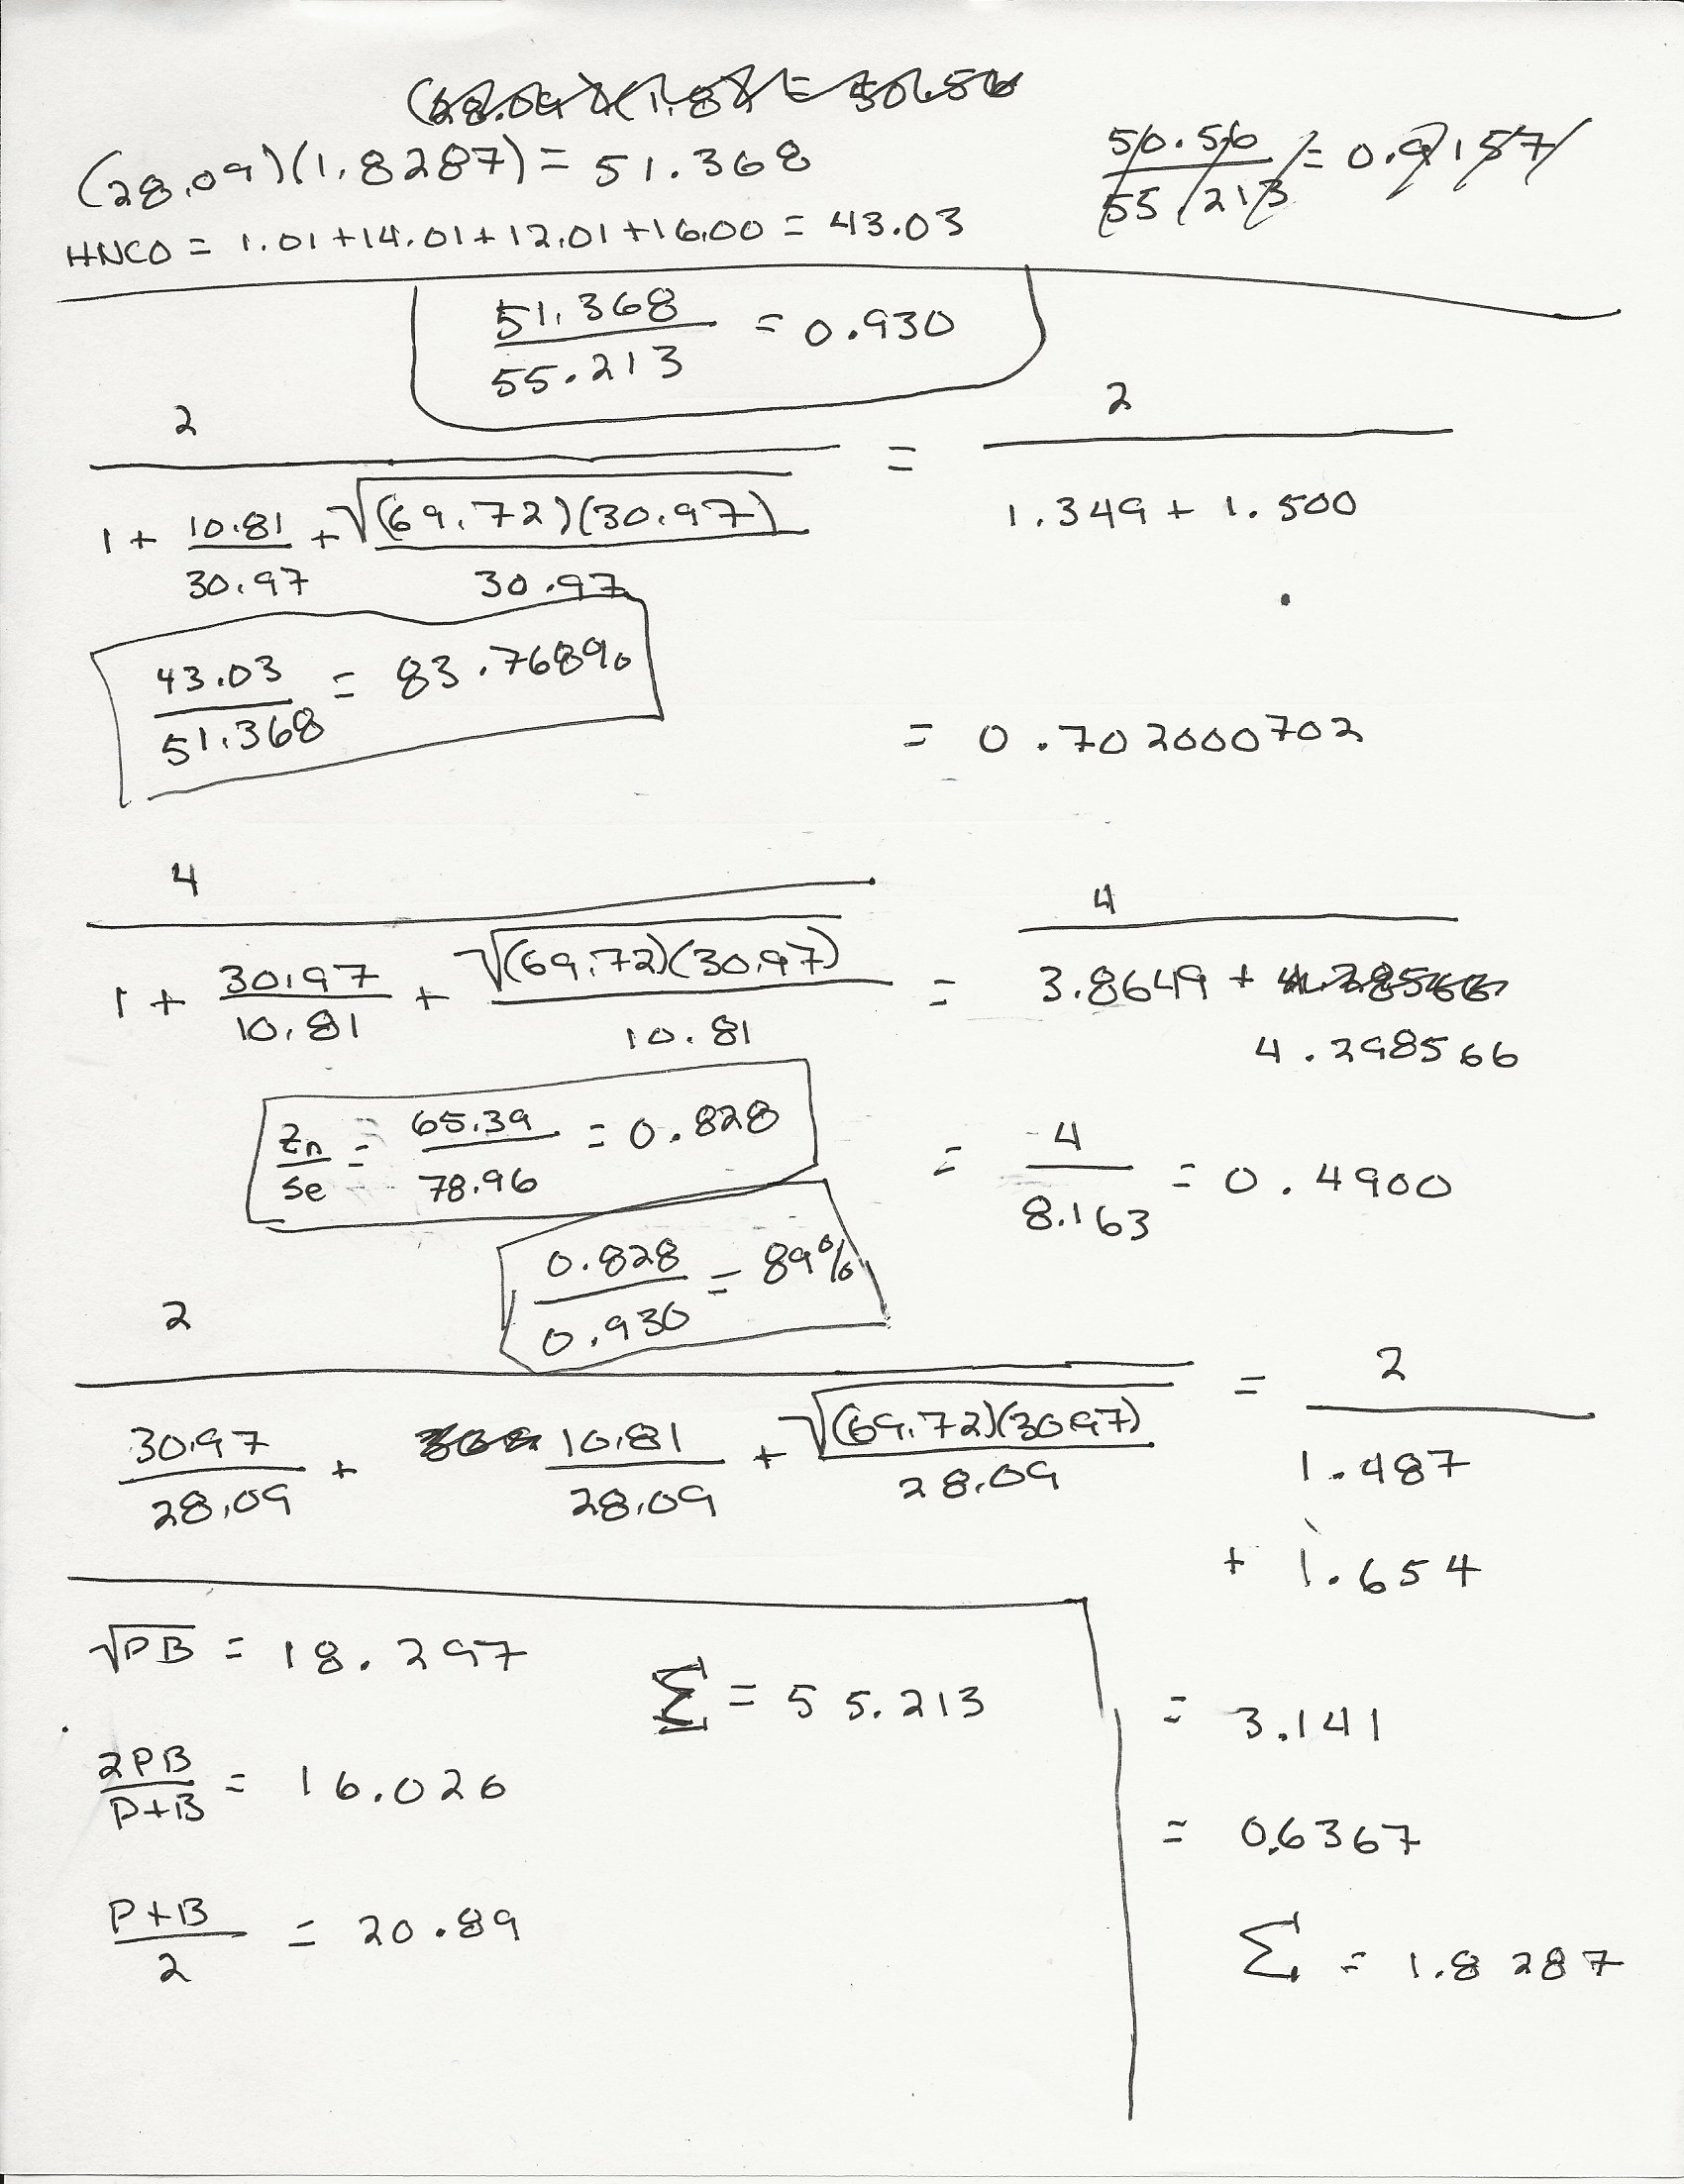 (28.09)(1.87) = 50.56
(28.09)(1.8287) = 51.368
50.56/55.213 = 0.9157
HNCO = 1.01+14.01+12.01+16.00 = 43.03
51.368/55.213 = 0.930
2/(1 + 10.81/30.97 + √(69.72)(30.97)/30.97) = 2/(1.349 + 1.500)
43.03/51.368 = 83.768%
= 0.702000702
4/(1 + 30.97/10.81 + √(69.72)(30.97)/10.81) = 4/(3.8649 + 4.298566)
Zn/Se = 65.39/78.96 = 0.828
= 4/8.163 = 0.4900
0.828/0.930 = 89%
2/(30.97/28.09 + 10.81/28.09 + √(69.72)(30.97)/28.09) = 2/(1.487
+ 1.654
√PB = 18.297
Σ = 55.213
= 3.141
2PB/P+B = 16.026
= 0.6367
P+B/2 = 20.89
Σ = 1.8287